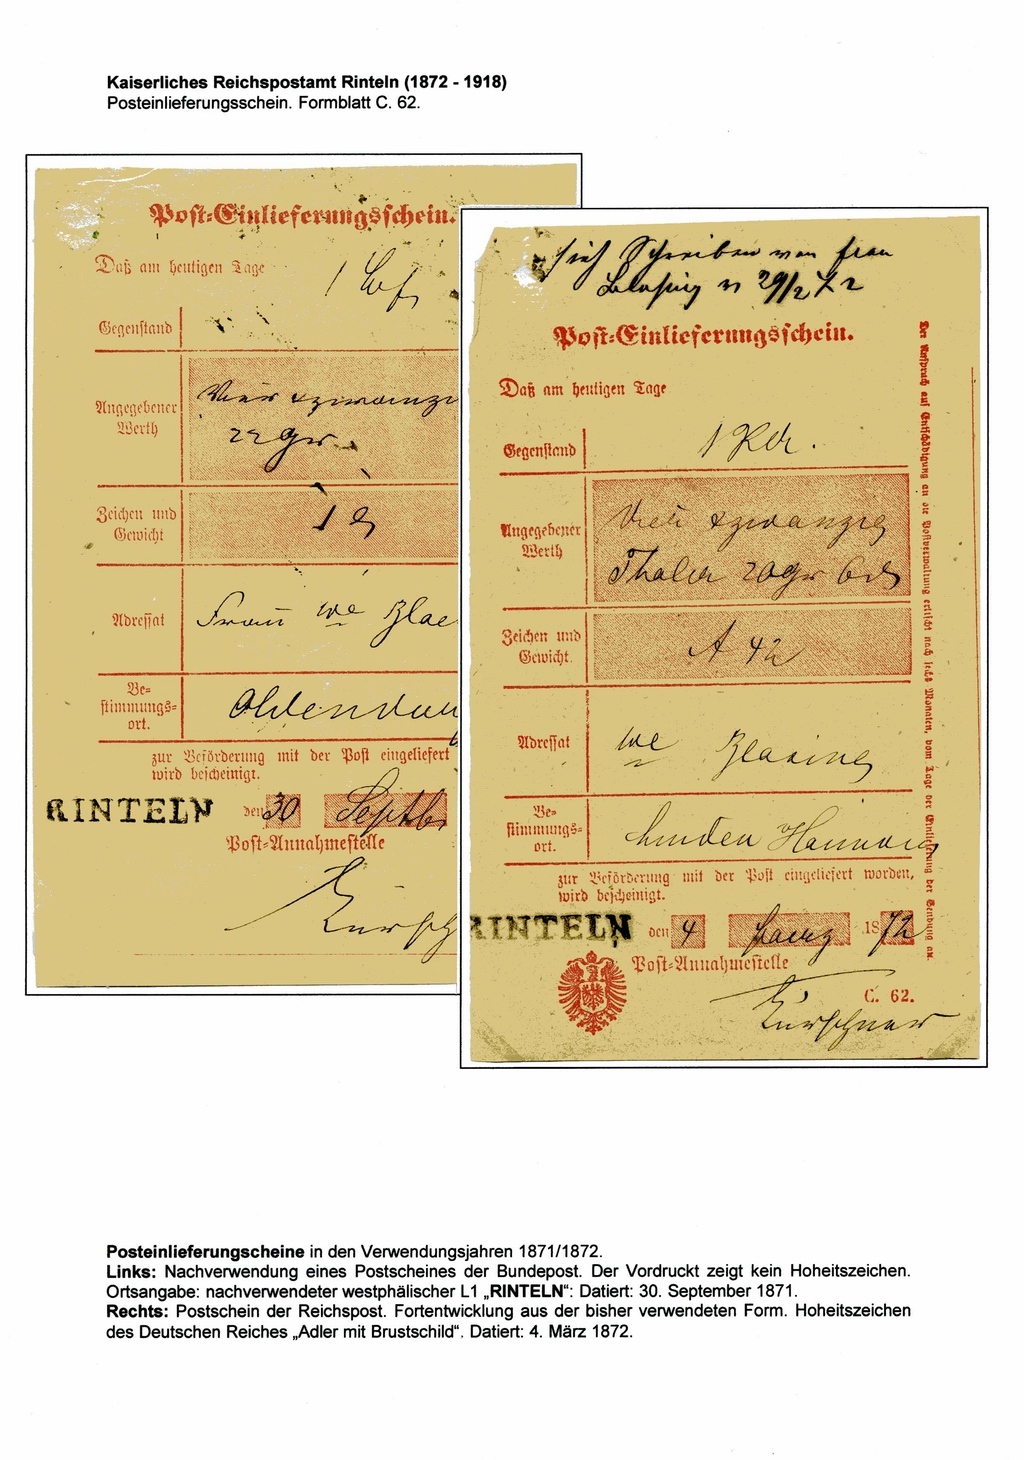 Kaiserliches Reichspostamt Rinteln (1872 - 1918)
Posteinlieferungsschein. Formblatt C. 62.
Post-Einlieferungsschein.
Daß am heutigen Tage
1
Gegenstand
Angegebener
Werth
Vier &
22 Gr
Zeichen und
Gewicht
Adressat
Frau We Blae
Be-
stimmungs-
ort.
Oldendorf
zur Beförderung mit der Post eingeliefert
wird bescheinigt.
RINTELN den 30 Septb
Post-Annahmestelle
Kürsch
sieh Schreiben von Frau
29/2 72
Post-Einlieferungsschein.
Daß am heutigen Tage
Gegenstand
1
Angegebener
Werth
Vier & zwanzig
Thaler 20gr 6
Zeichen und
Gewicht.
A 42
Adressat
We Blasing
Be-
stimmungs-
ort.
Linden Hannover
zur Beförderung mit der Post eingeliefert worden,
wird bescheinigt.
RINTELN den 4 Maerz 1872
Post-Annahmestelle
C. 62.
Kürschner
Der Anspruch auf Entschädigung an die Postverwaltung erlischt nach sechs Monaten, vom Tage der Einlieferung der Sendung an.
Posteinlieferungscheine in den Verwendungsjahren 1871/1872.
Links: Nachverwendung eines Postscheines der Bundepost. Der Vordruckt zeigt kein Hoheitszeichen.
Ortsangabe: nachverwendeter westphälischer L1 „RINTELN“: Datiert: 30. September 1871.
Rechts: Postschein der Reichspost. Fortentwicklung aus der bisher verwendeten Form. Hoheitszeichen
des Deutschen Reiches „Adler mit Brustschild“. Datiert: 4. März 1872.